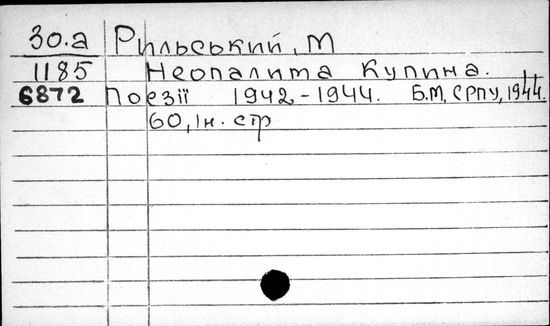 30.а Рильський, М
1185 Неопалита Купина.
6872 Поезії 1942-1944. Б.М, СРПУ, 1944.
60, Ін. стр